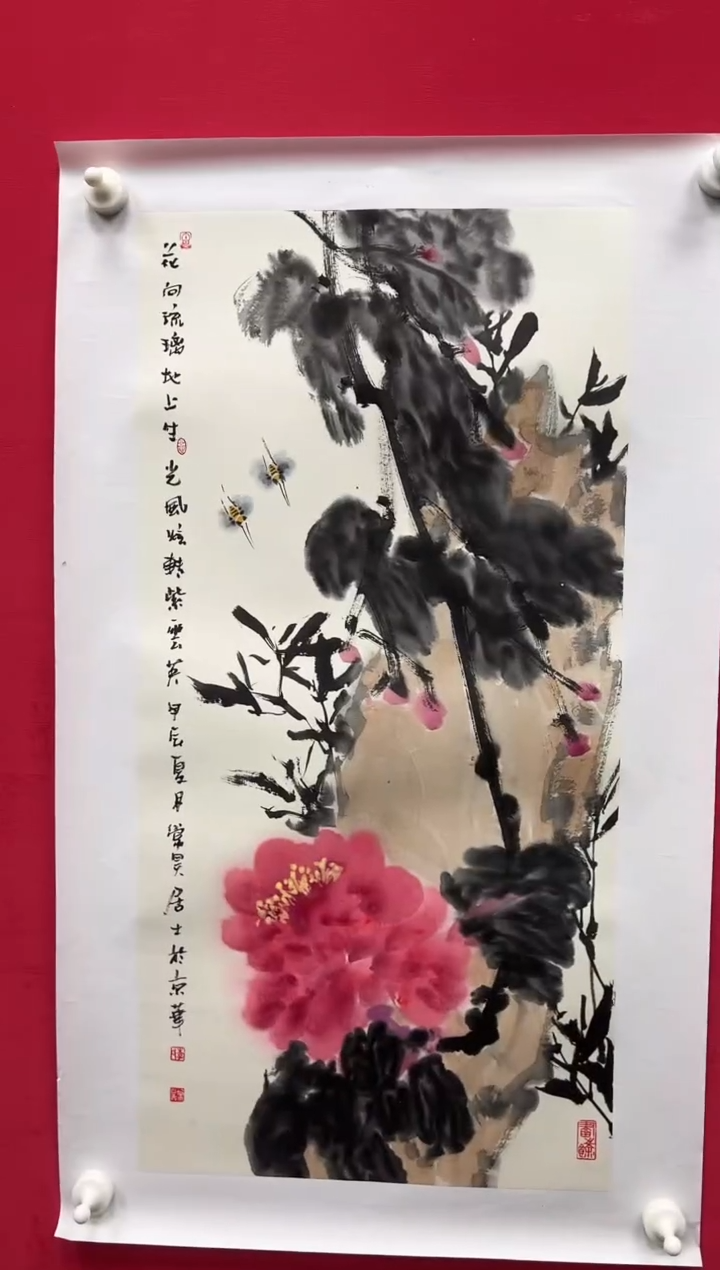 花向琉璃地上生光風炫轉紫雲英甲辰夏月常昊居士於京華